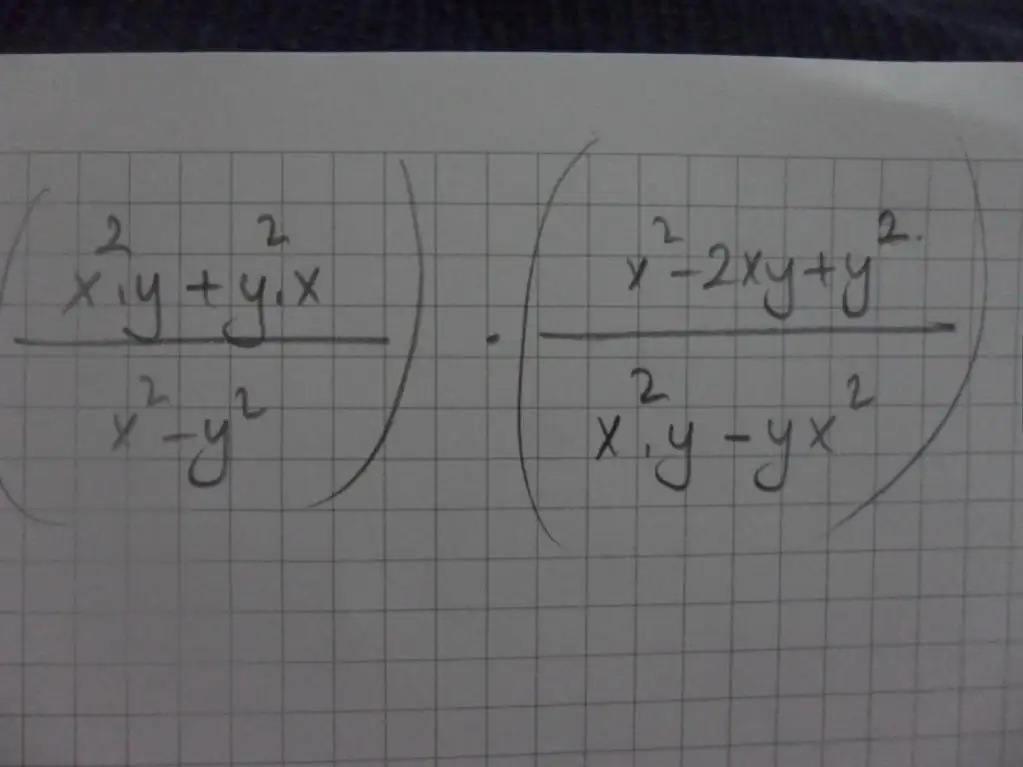 (x²·y + y²·x / x² - y²) · (x² - 2xy + y² / x²·y - yx²)